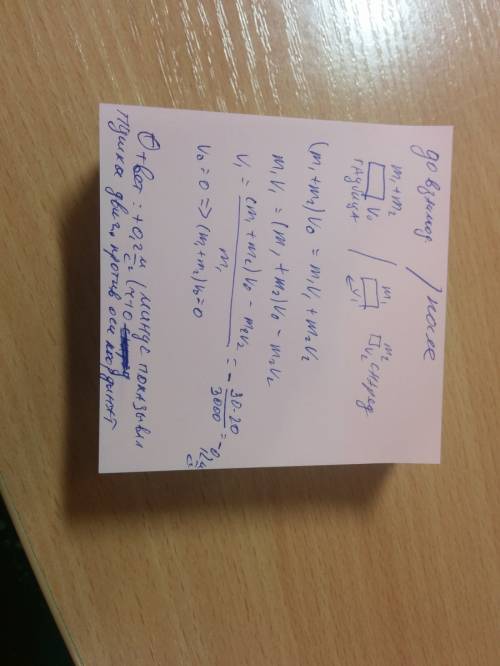 до взаимод / после
m₁+m₂ V₀ / m₁ ←V₁ m₂ V₂ снаряд
(m₁+m₂)V₀ = m₁V₁ + m₂V₂
m₁V₁ = (m₁+m₂)V₀ - m₂V₂
V₁ = (m₁+m₂)V₀ - m₂V₂ / m₁ = - 30·20 / 3000 = -0,2
V₀ = 0 => (m₁+m₂)V₀ = 0
Ответ: -0,2 м/с (минус показывал
пушка двиг. против оси координат